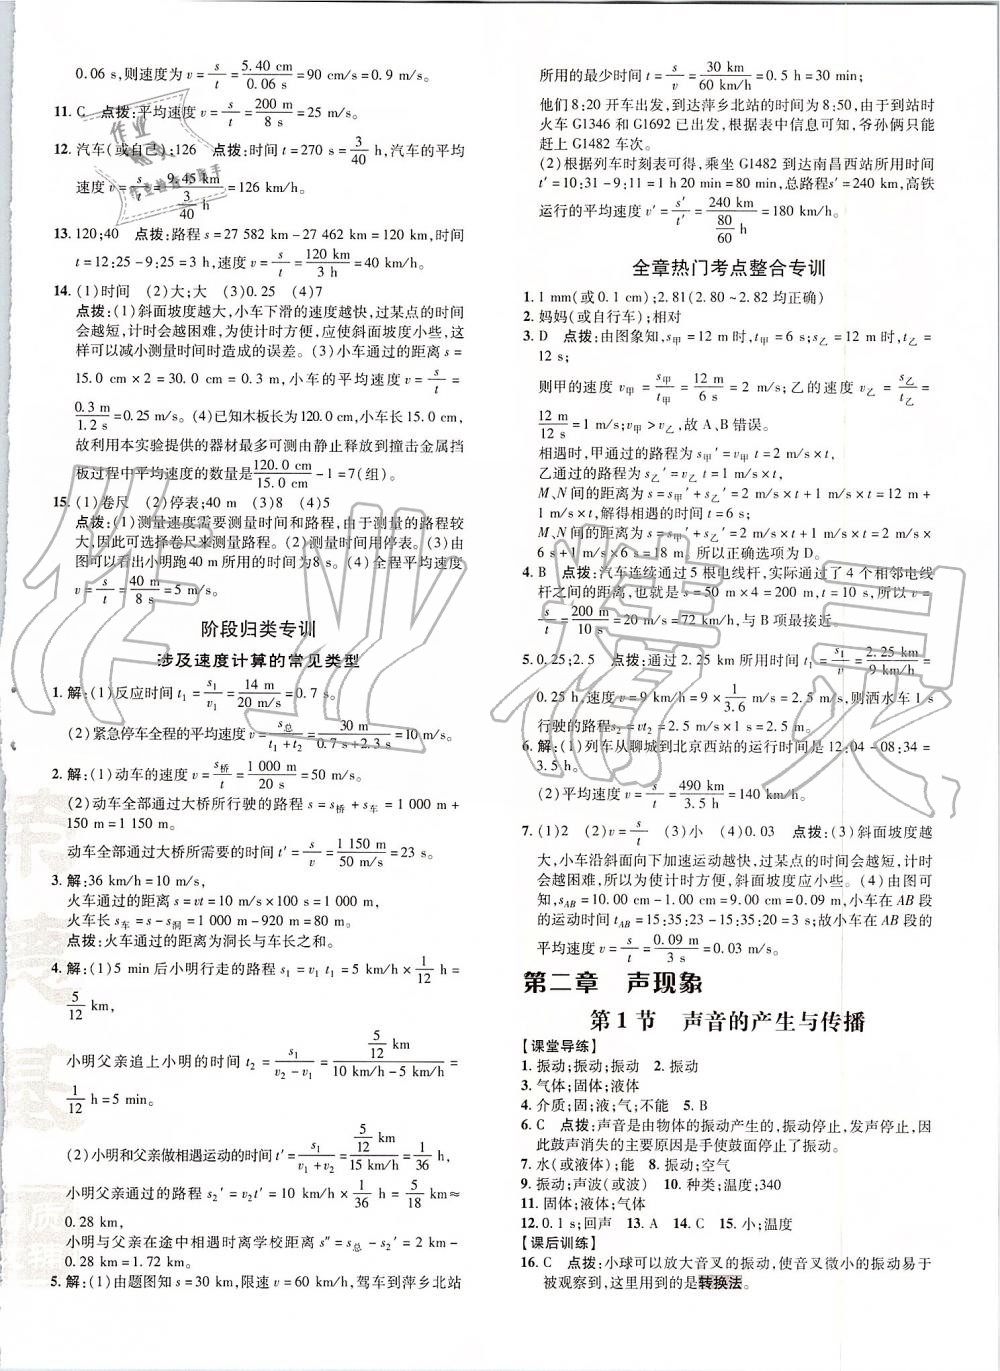 0.06 s,则速度为v=s/t=5.40 cm/0.06 s=90 cm/s=0.9 m/s。
11. C 点拨:平均速度v=s/t=200 m/8 s=25 m/s。
12. 汽车(或自己);126 点拨:时间t=270 s=3/40 h,汽车的平均
速度v=s/t=9.45 km/(3/40 h)=126 km/h。
13. 120;40 点拨:路程s=27 582 km-27 462 km=120 km,时间
t=12:25-9:25=3 h,速度v=s/t=120 km/3 h=40 km/h。
14. (1)时间 (2)大;大 (3)0.25 (4)7
点拨:(1)斜面坡度越大,小车下滑的速度越快,过某点的时间
会越短,计时会越困难,为使计时方便,应使斜面坡度小些,这
样可以减小测量时间时造成的误差。(3)小车通过的距离s=
15.0 cm×2=30.0 cm=0.3 m,小车的平均速度v=s/t=
0.3 m/1.2 s=0.25 m/s。(4)已知木板长为120.0 cm,小车长15.0 cm,
故利用本实验提供的器材最多可测由静止释放到撞击金属挡
板过程中平均速度的数量是120.0 cm/15.0 cm-1=7(组)。
15. (1)卷尺 (2)停表;40 m (3)8 (4)5
点拨:(1)测量速度需要测量时间和路程,由于测量的路程较
大,因此可选择卷尺来测量路程。(2)测量时间用停表。(3)由
图可以看出小明跑40 m所用的时间为8 s。(4)全程平均速度
v=s/t=40 m/8 s=5 m/s。
阶段归类专训
涉及速度计算的常见类型
1. 解:(1)反应时间t₁=s₁/v₁=14 m/20 m/s=0.7 s。
(2)紧急停车全程的平均速度v=s总/(t₁+t₂)=30 m/(0.7 s+2.3 s)=10 m/s。
2. 解:(1)动车的速度v=s桥/t=1 000 m/20 s=50 m/s。
(2)动车全部通过大桥所行驶的路程s=s桥+s车=1 000 m+
150 m=1 150 m。
动车全部通过大桥所需要的时间t′=s/v=1 150 m/50 m/s=23 s。
3. 解:36 km/h=10 m/s,
火车通过的距离s=vt=10 m/s×100 s=1 000 m,
火车长s车=s-s洞=1 000 m-920 m=80 m。
点拨:火车通过的距离为洞长与车长之和。
4. 解:(1)5 min后小明行走的路程s₁=v₁t₁=5 km/h×1/12 h=
5/12 km,
小明父亲追上小明的时间t₂=s₁/(v₂-v₁)=(5/12 km)/(10 km/h-5 km/h)=
1/12 h=5 min。
(2)小明和父亲做相遇运动的时间t′=s₁/(v₁+v₂)=(5/12 km)/(15 km/h)=1/36 h,
小明父亲通过的路程s₂′=v₂t′=10 km/h×1/36 h=5/18 km≈
0.28 km,
小明与父亲在途中相遇时离学校距离s″=s总-s₂′=2 km-
0.28 km=1.72 km。
5. 解:(1)由题图知s=30 km,限速v=60 km/h,驾车到萍乡北站
所用的最少时间t=s/v=30 km/60 km/h=0.5 h=30 min;
他们8:20开车出发,到达萍乡北站的时间为8:50,由于到站时
火车G1346和G1692已出发,根据表中信息可知,爷孙俩只能
赶上G1482车次。
(2)根据列车时刻表可得,乘坐G1482到达南昌西站所用时间
t′=10:31-9:11=1 h 20 min=80 min,总路程s′=240 km,高铁
运行的平均速度v′=s′/t′=240 km/(80/60 h)=180 km/h。
全章热门考点整合专训
1. 1 mm(或0.1 cm);2.81(2.80~2.82均正确)
2. 妈妈(或自行车);相对
3. D 点拨:由图象知,s甲=12 m时,t甲=6 s;s乙=12 m时,t乙=
12 s;
则甲的速度v甲=s甲/t甲=12 m/6 s=2 m/s;乙的速度v乙=s乙/t乙=
12 m/12 s=1 m/s;v甲>v乙,故A、B错误。
相遇时,甲通过的路程为s甲′=v甲t=2 m/s×t,
乙通过的路程为s乙′=v乙t=1 m/s×t,
M、N间的距离为s=s甲′+s乙′=2 m/s×t+1 m/s×t=12 m+
1 m/s×t,解得相遇的时间t=6 s;
M、N间的距离为:s=s甲′+s乙′=2 m/s×t+1 m/s×t=2 m/s×
6 s+1 m/s×6 s=18 m。所以正确选项为D。
4. B 点拨:汽车连续通过5根电线杆,实际通过了4个相邻电线
杆之间的距离,也就是s=50 m×4=200 m,t=10 s,所以v=
s/t=200 m/10 s=20 m/s=72 km/h,与B项最接近。
5. 0.25;2.5 点拨:通过2.25 km所用时间t₁=s₁/v=2.25 km/9 km/h=
0.25 h,速度v=9 km/h=9×1/3.6 m/s=2.5 m/s,则洒水车1 s
行驶的路程s₂=vt₂=2.5 m/s×1 s=2.5 m。
6. 解:(1)列车从聊城到北京西站的运行时间是12:04-08:34=
3.5 h。
(2)平均速度v=s/t=490 km/3.5 h=140 km/h。
7. (1)2 (2)v=s/t (3)小 (4)0.03 点拨:(3)斜面坡度越
大,小车沿斜面向下加速运动越快,过某点的时间会越短,计时
会越困难,所以为使计时方便,斜面坡度应小些。(4)由图可
知,sAB=10.00 cm-1.00 cm=9.00 cm=0.09 m,小车在AB段
的运动时间tAB=15:35:23-15:35:20=3 s;故小车在AB段的
平均速度v=s/t=0.09 m/3 s=0.03 m/s。
第二章 声现象
第1节 声音的产生与传播
【课堂导练】
1. 振动;振动;振动 2. 振动
3. 气体;固体;液体
4. 介质;固;液;气;不能 5. B
6. C 点拨:声音是由物体的振动产生的,振动停止,发声停止,因
此鼓声消失的主要原因是手使鼓面停止了振动。
7. 水(或液体);能 8. 振动;空气
9. 振动;声波(或波) 10. 种类;温度;340
11. 固体;液体;气体
12. 0.1 s;回声 13. A 14. C 15. 小;温度
【课后训练】
16. C 点拨:小球可以放大音叉的振动,使音叉微小的振动易于
被观察到,这里用到的是转换法。